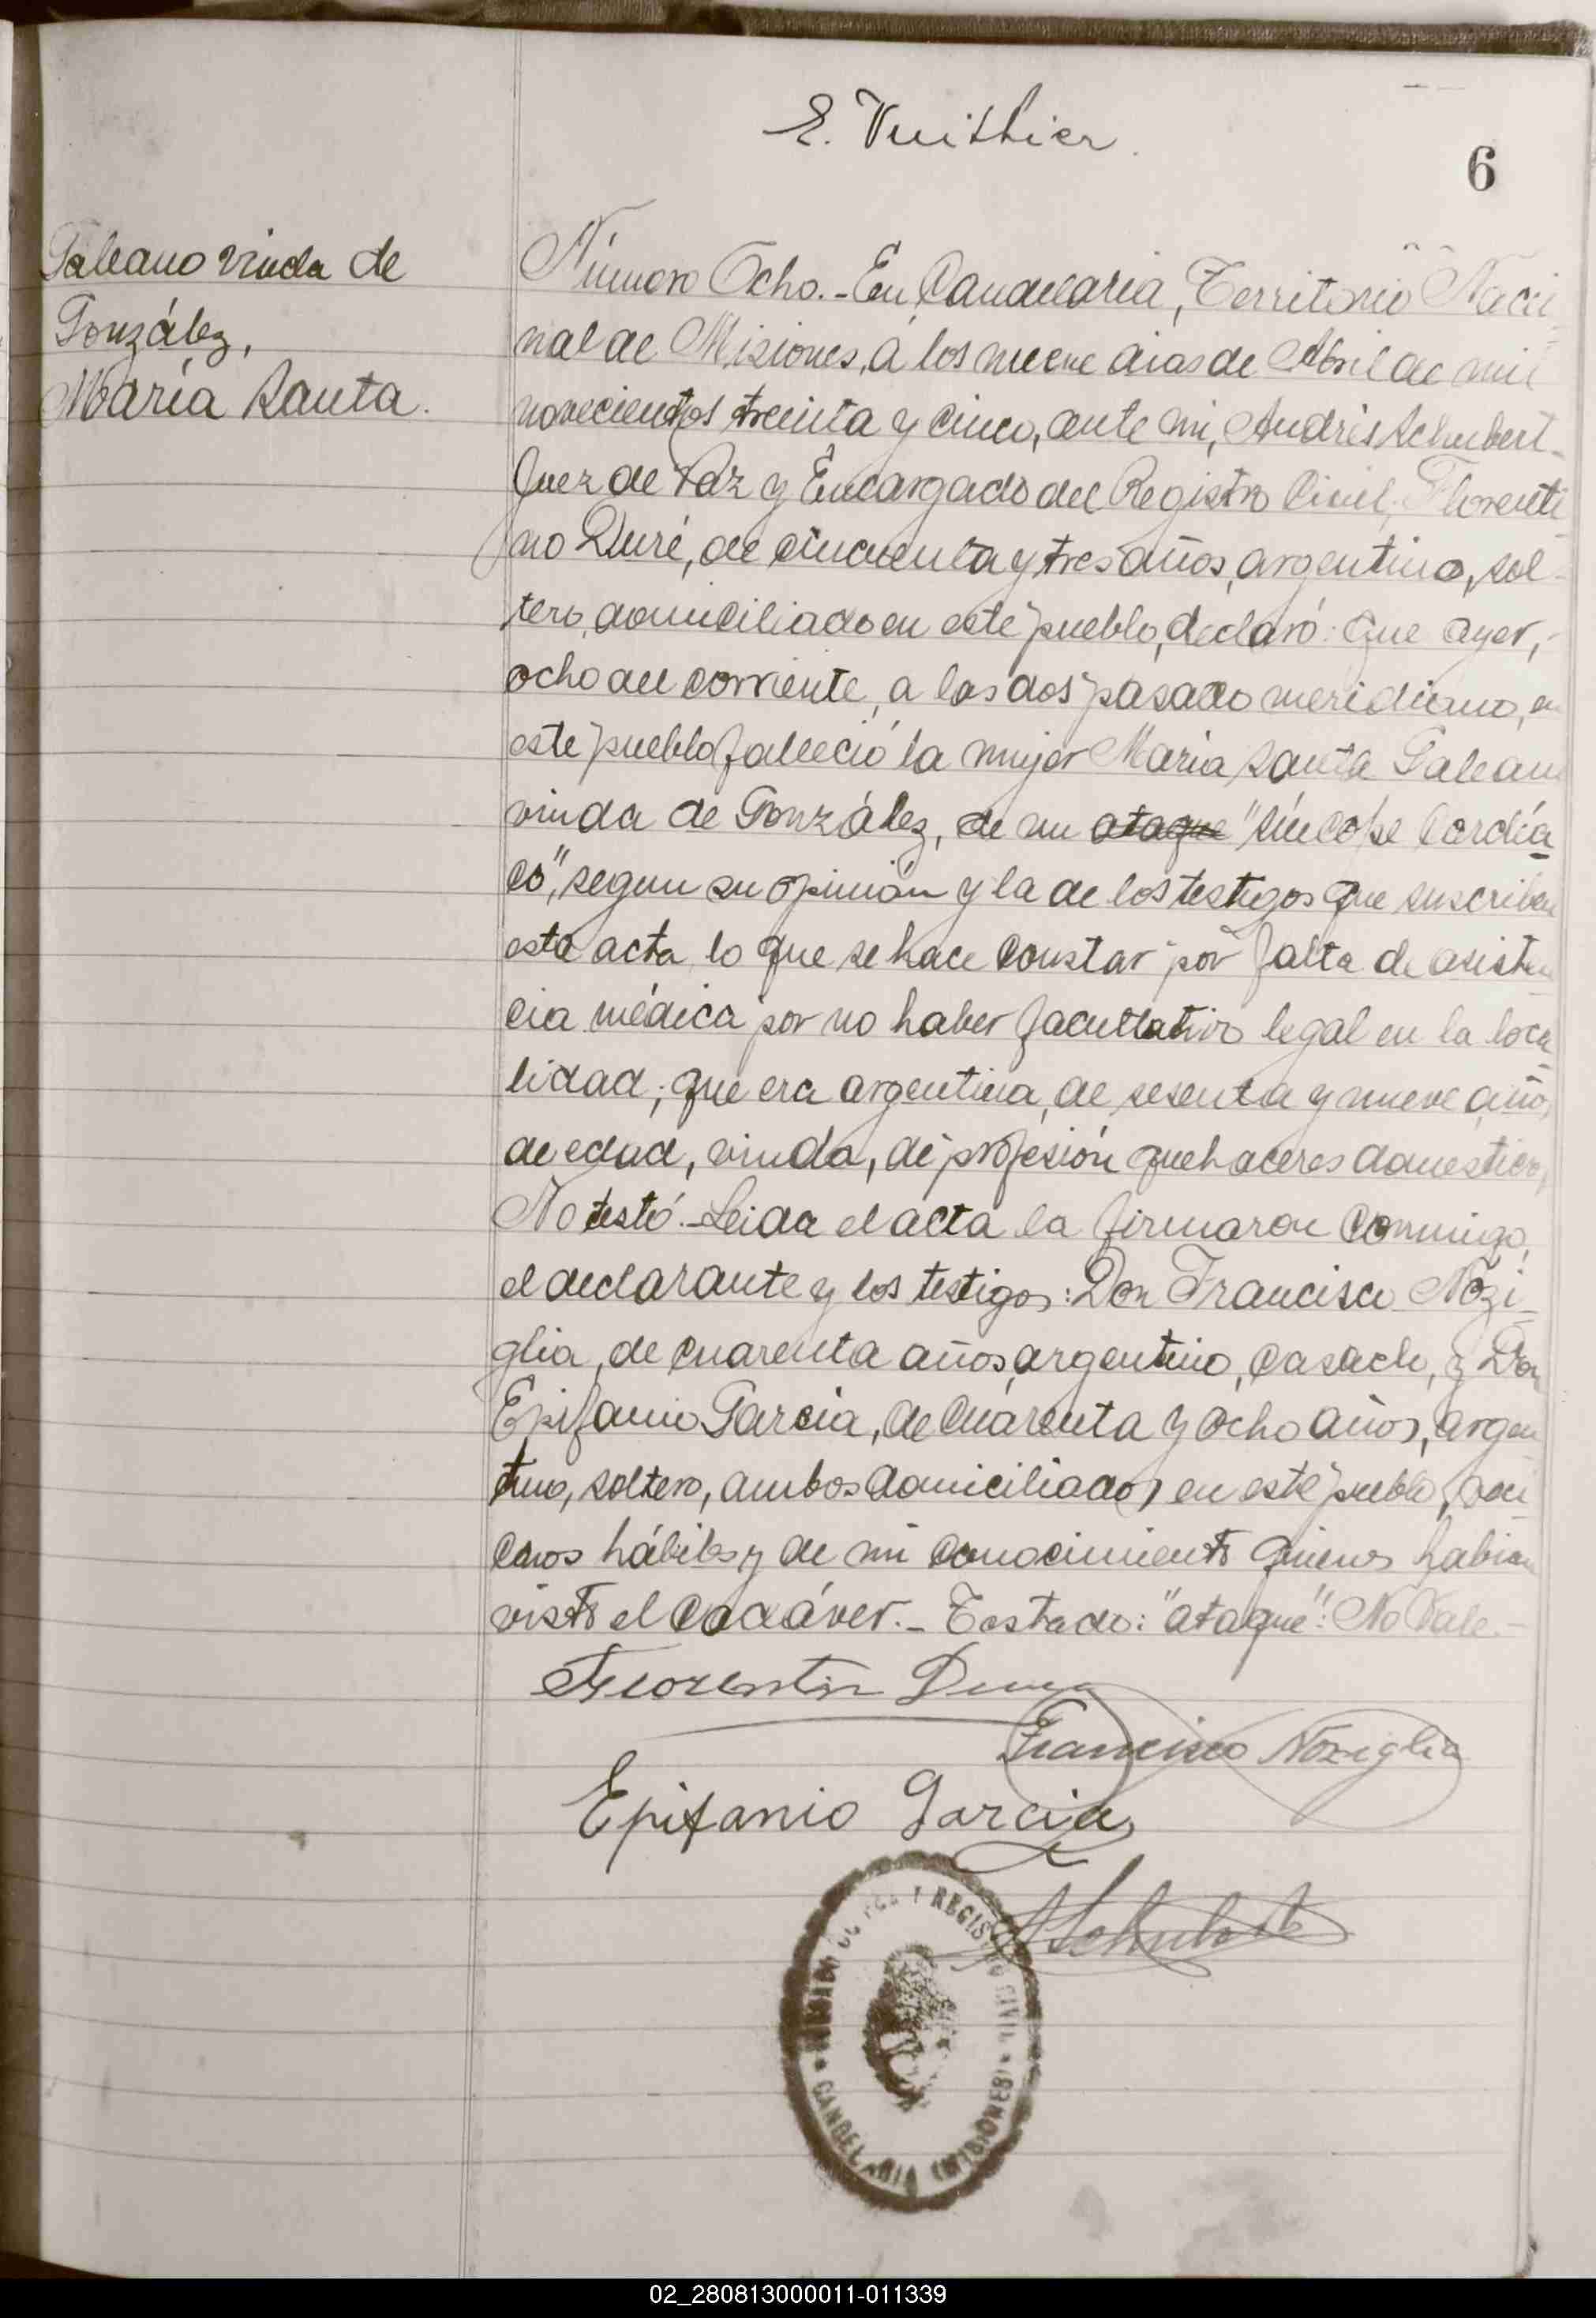 E. Vuithier.
6
Galeano viuda de
González,
María Santa.
Número Ocho.- En Candelaria, Territorio Nacio-
nal de Misiones, á los nueve dias de Abril de mil
novecientos treinta y cinco, ante mi, Andrés Schubert
Juez de Paz y Encargado del Registro Civil, Florenti-
no Duré, de cincuenta y tres años, argentino, sol-
tero, domiciliado en este pueblo, declaró: Que ayer,
ocho del corriente, a las dos pasado meridiano, en
este pueblo falleció la mujer María Santa Galeano
viuda de González, de un ataque "síncope Cardía-
co", segun su opinión y la de los testigos que suscriben
esta acta, lo que se hace constar por falta de asisten-
cia médica por no haber facultativo legal en la loca-
lidad; que era argentina, de sesenta y nueve años,
de edad, viuda, de profesión quehaceres domésticos,
No testó.- Leida el acta la firmaron conmigo,
el declarante y los testigos: Don Francisco Nozi-
glia, de cuarenta años, argentino, casado, y Don
Epifanio García, de cuarenta y ocho años, argen-
tino, soltero, ambos domiciliados en este pueblo, veci-
cinos hábiles y de mi conocimiento quienes habian
visto el cadáver.- Testado: "ataque": No Vale.-
Florentin Dure
Francisco Noziglia
Epifanio Garcia
ASchubert
JUZGADO DE PAZ Y REGISTRO CIVIL
CANDELARIA (MISIONES)
02_280813000011-011339